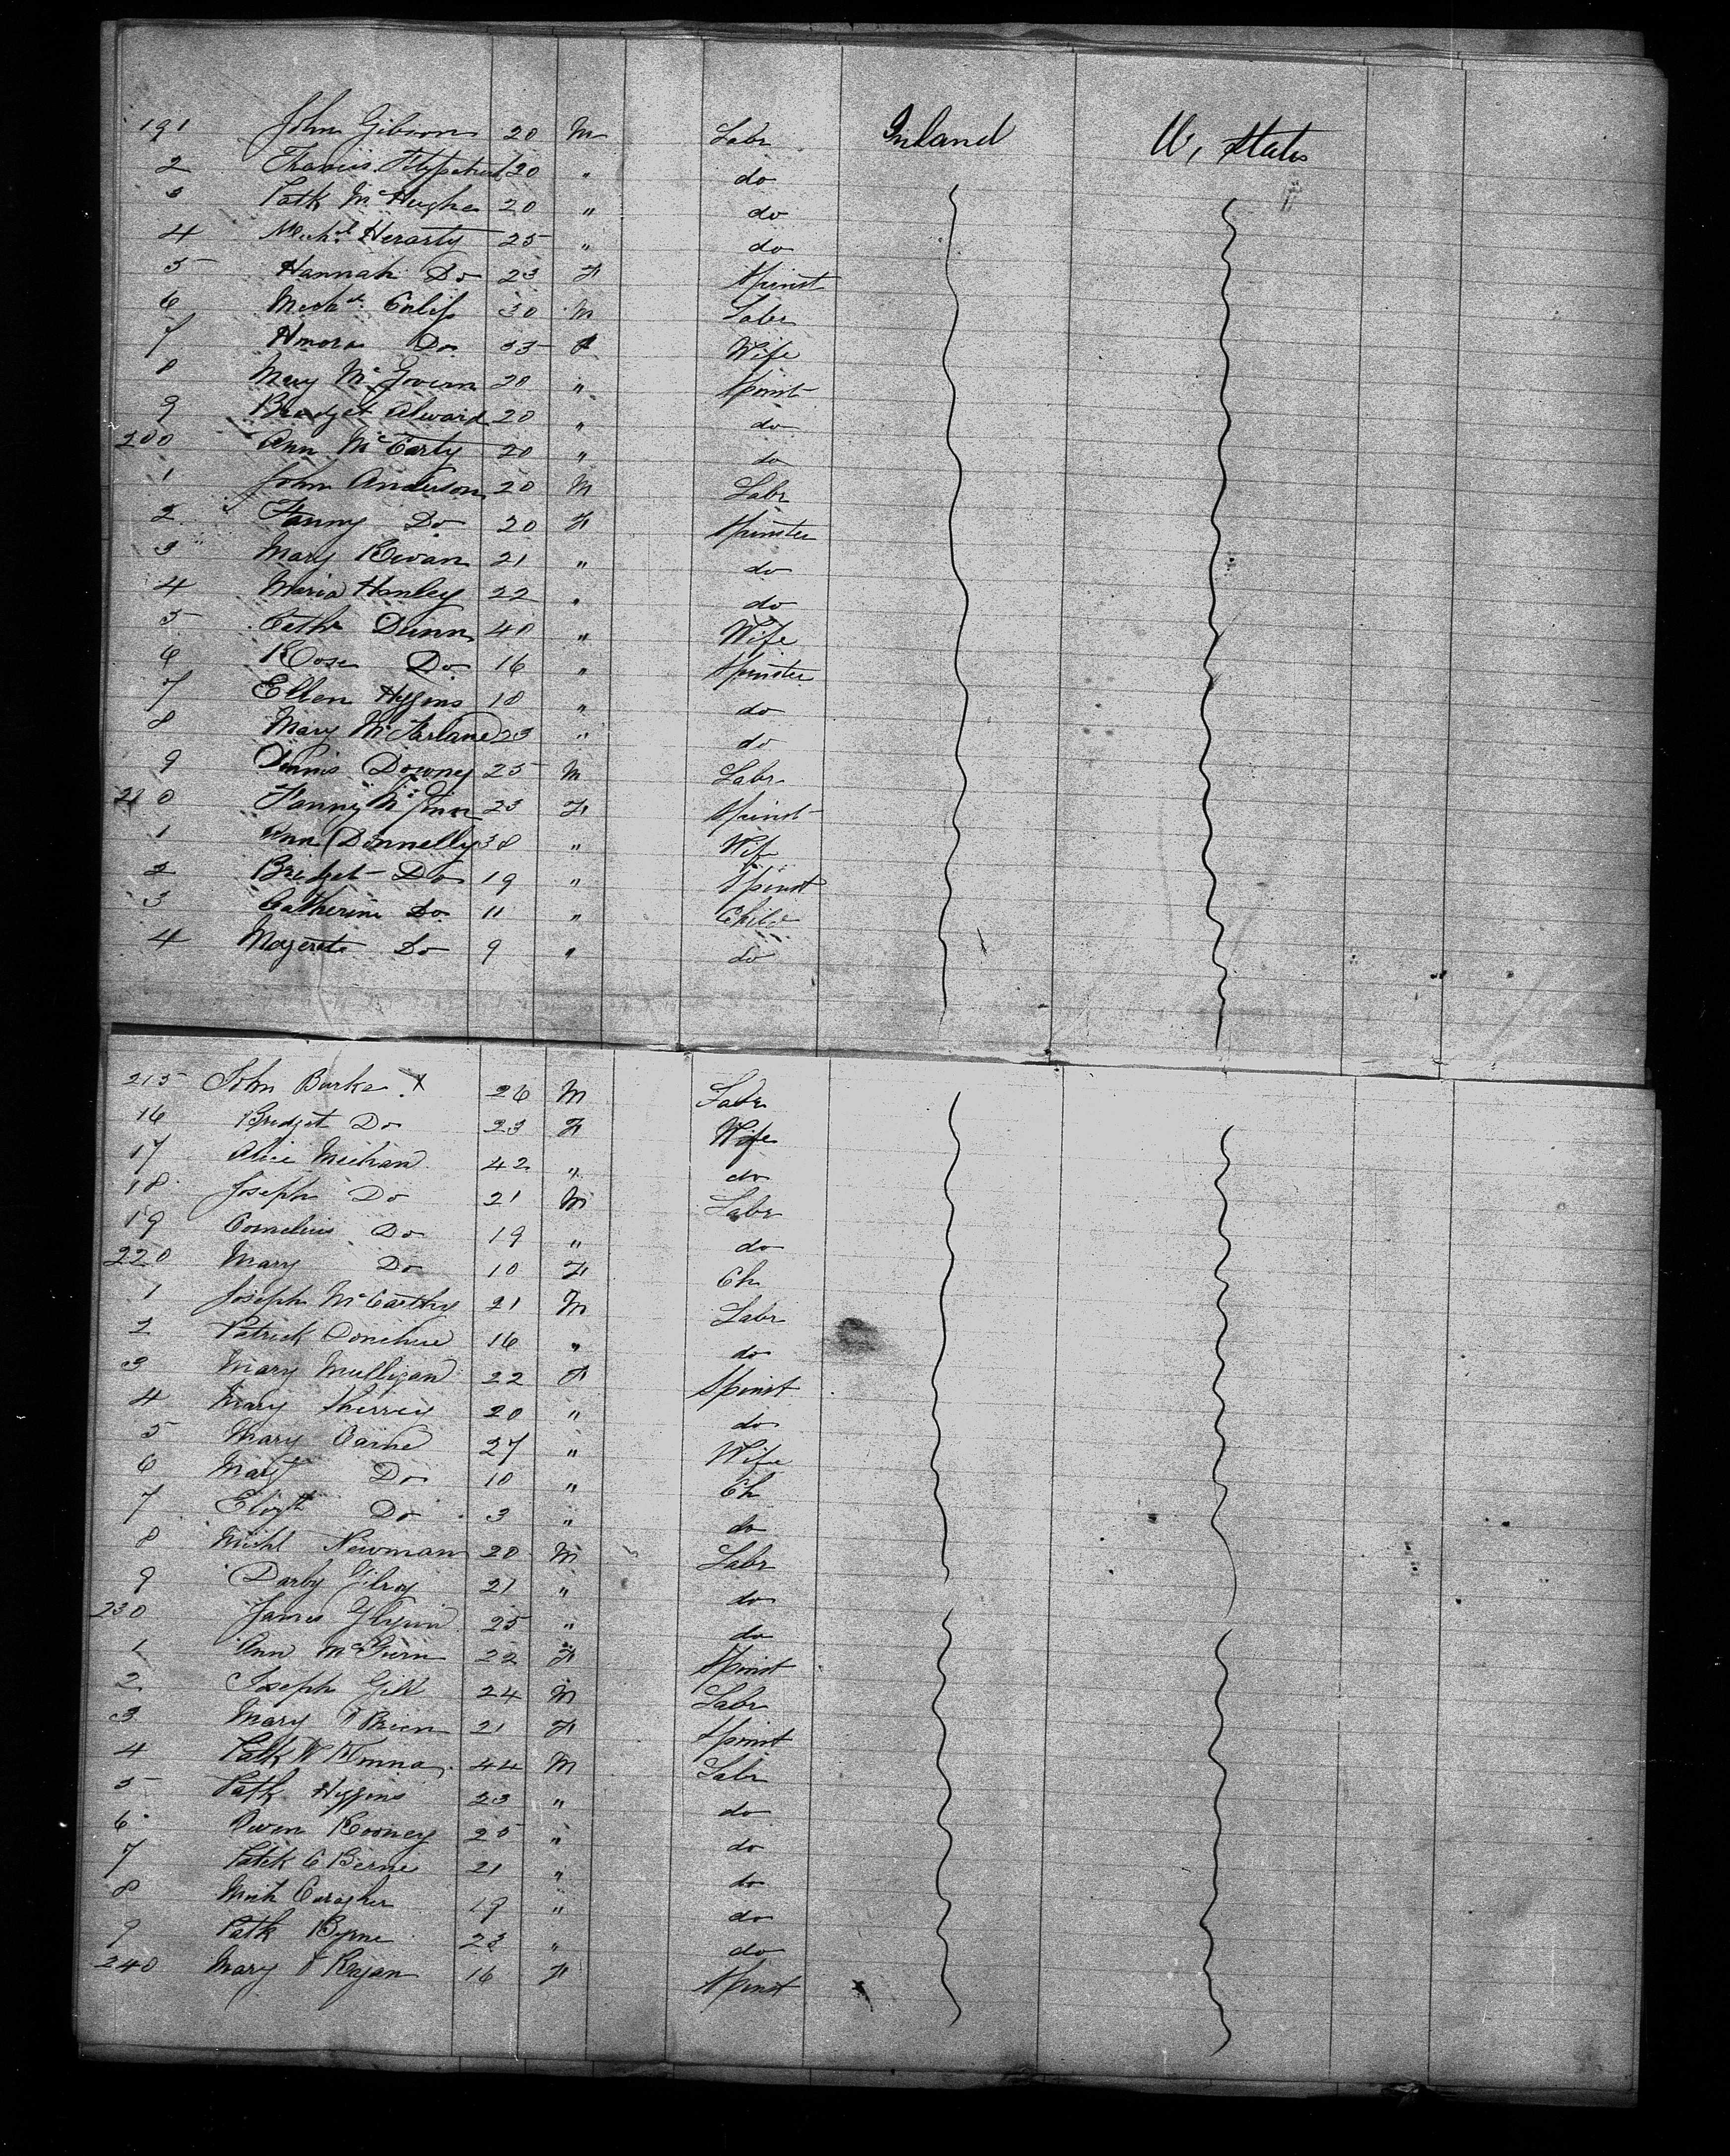 191 John Gibson 20 M Labr Ireland U, States
2 Francis Fitzpatrick 20 " do
3 Patk McHughe 20 " do
4 Michl Herarty 25 " do
5 Hannah Do 23 F Spinst
6 Michl 30 M Labr
7 Honora Do 35 F Wife
8 Mary McGovern 20 " Spinst
9 Bridget Alward 20 " do
200 Ann McCarty 20 " do
1 John Anderson 20 M Labr
2 Fanny Do 20 F Spinster
3 Mary Kevan 21 " do
4 Maria Hanley 22 " do
5 Cathr Dunn 40 " Wife
6 Rose Do 16 " Spinster
7 Ellen Higgins 18 " do
8 Mary McFarlane 23 " do
9 Dennis Downey 25 M Labr
210 Fanny 23 F Spinst
1 Ann Donnelly 38 " Wife
2 Bridget Do 19 " Spinst
3 Catherine Do 11 " Child
4 Do 9 " do
215 John Burke x 26 M Labr
16 Bridget Do 23 F Wife
17 Alice Meehan 42 " do
18 Joseph Do 21 M Labr
19 Cornelius Do 19 " do
220 Mary Do 10 F Ch
1 Joseph McCarthy 21 M Labr
2 Patrick Donehue 16 " do
3 Mary Mulligan 22 F Spinst
4 Mary 20 " do
5 Mary Carne 27 " Wife
6 Mary Do 10 " Ch
7 Elizth Do 3 " do
8 Michl Newman 20 M Labr
9 Darby Gilroy 21 " do
230 James Glynn 25 " do
1 Ann McGurn 22 F Spinst
2 Joseph Gill 24 M Labr
3 Mary O'Brien 21 F Spinst
4 Patk 44 M Labr
5 Patk Higgins 23 " do
6 Owen Rooney 25 " do
7 Patck O Berne 21 " do
8 Mich Caragher 19 " do
9 Patk Byrne 23 " do
240 Mary O Ryan 16 F Spinst